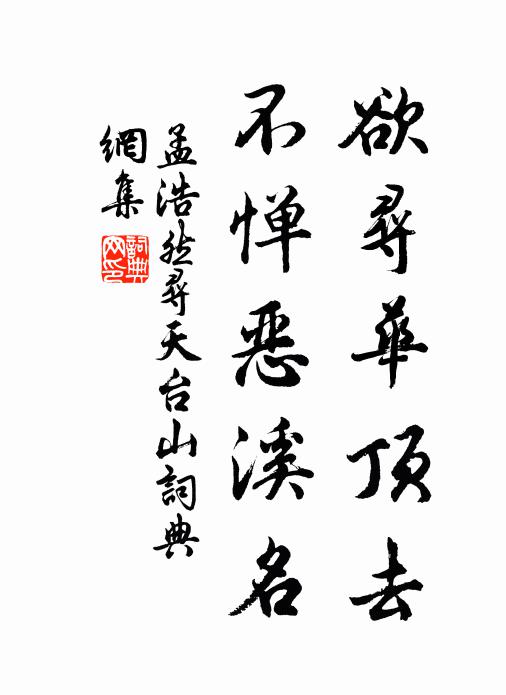 欲尋華頂去
不憚惡溪名
孟浩然尋天台山詞典
網集
詞典網印